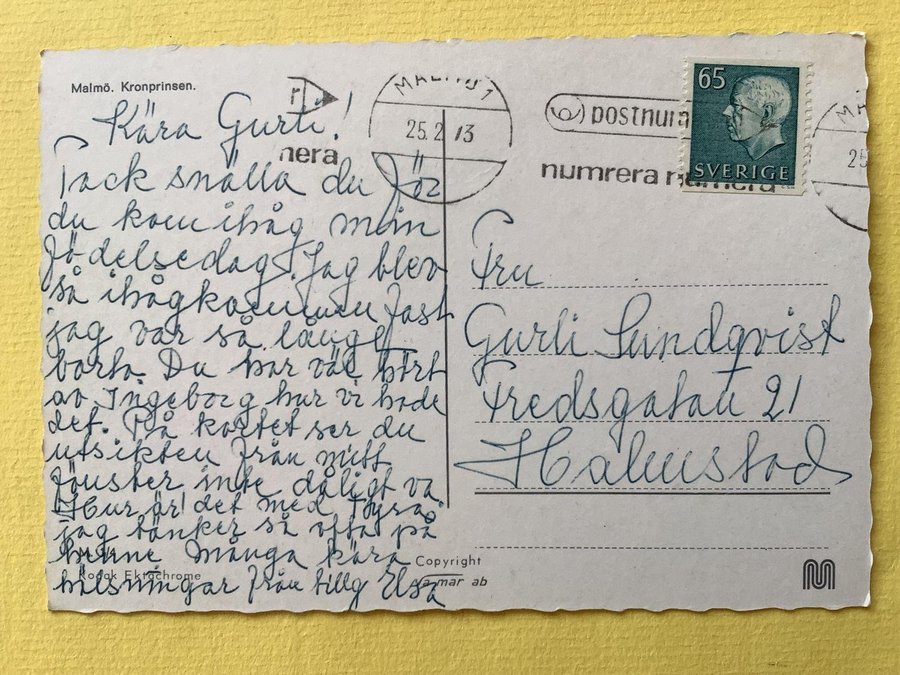 Malmö. Kronprinsen.
Kära Gurli!
Tack snälla du för
du kom ihåg min
födelsedag. Jag blev
så ihågkommen fast
jag var så långt
borta. Du har väl hört
av Ingeborg hur vi hade
det. På kortet ser du
utsikten från mitt
fönster inte dåligt va
Hur är det med Tyra,
jag tänker så ofta på
henne många kära
hälsningar från tillg Elsa
Kodak Ektachrome
nera
MALMÖ 1
25.2 73
postnum
numrera numrera
65
SVERIGE
MA
25
Fru
Gurli Sundqvist
Fredsgatan 21
Halmstad
Copyright
mar ab